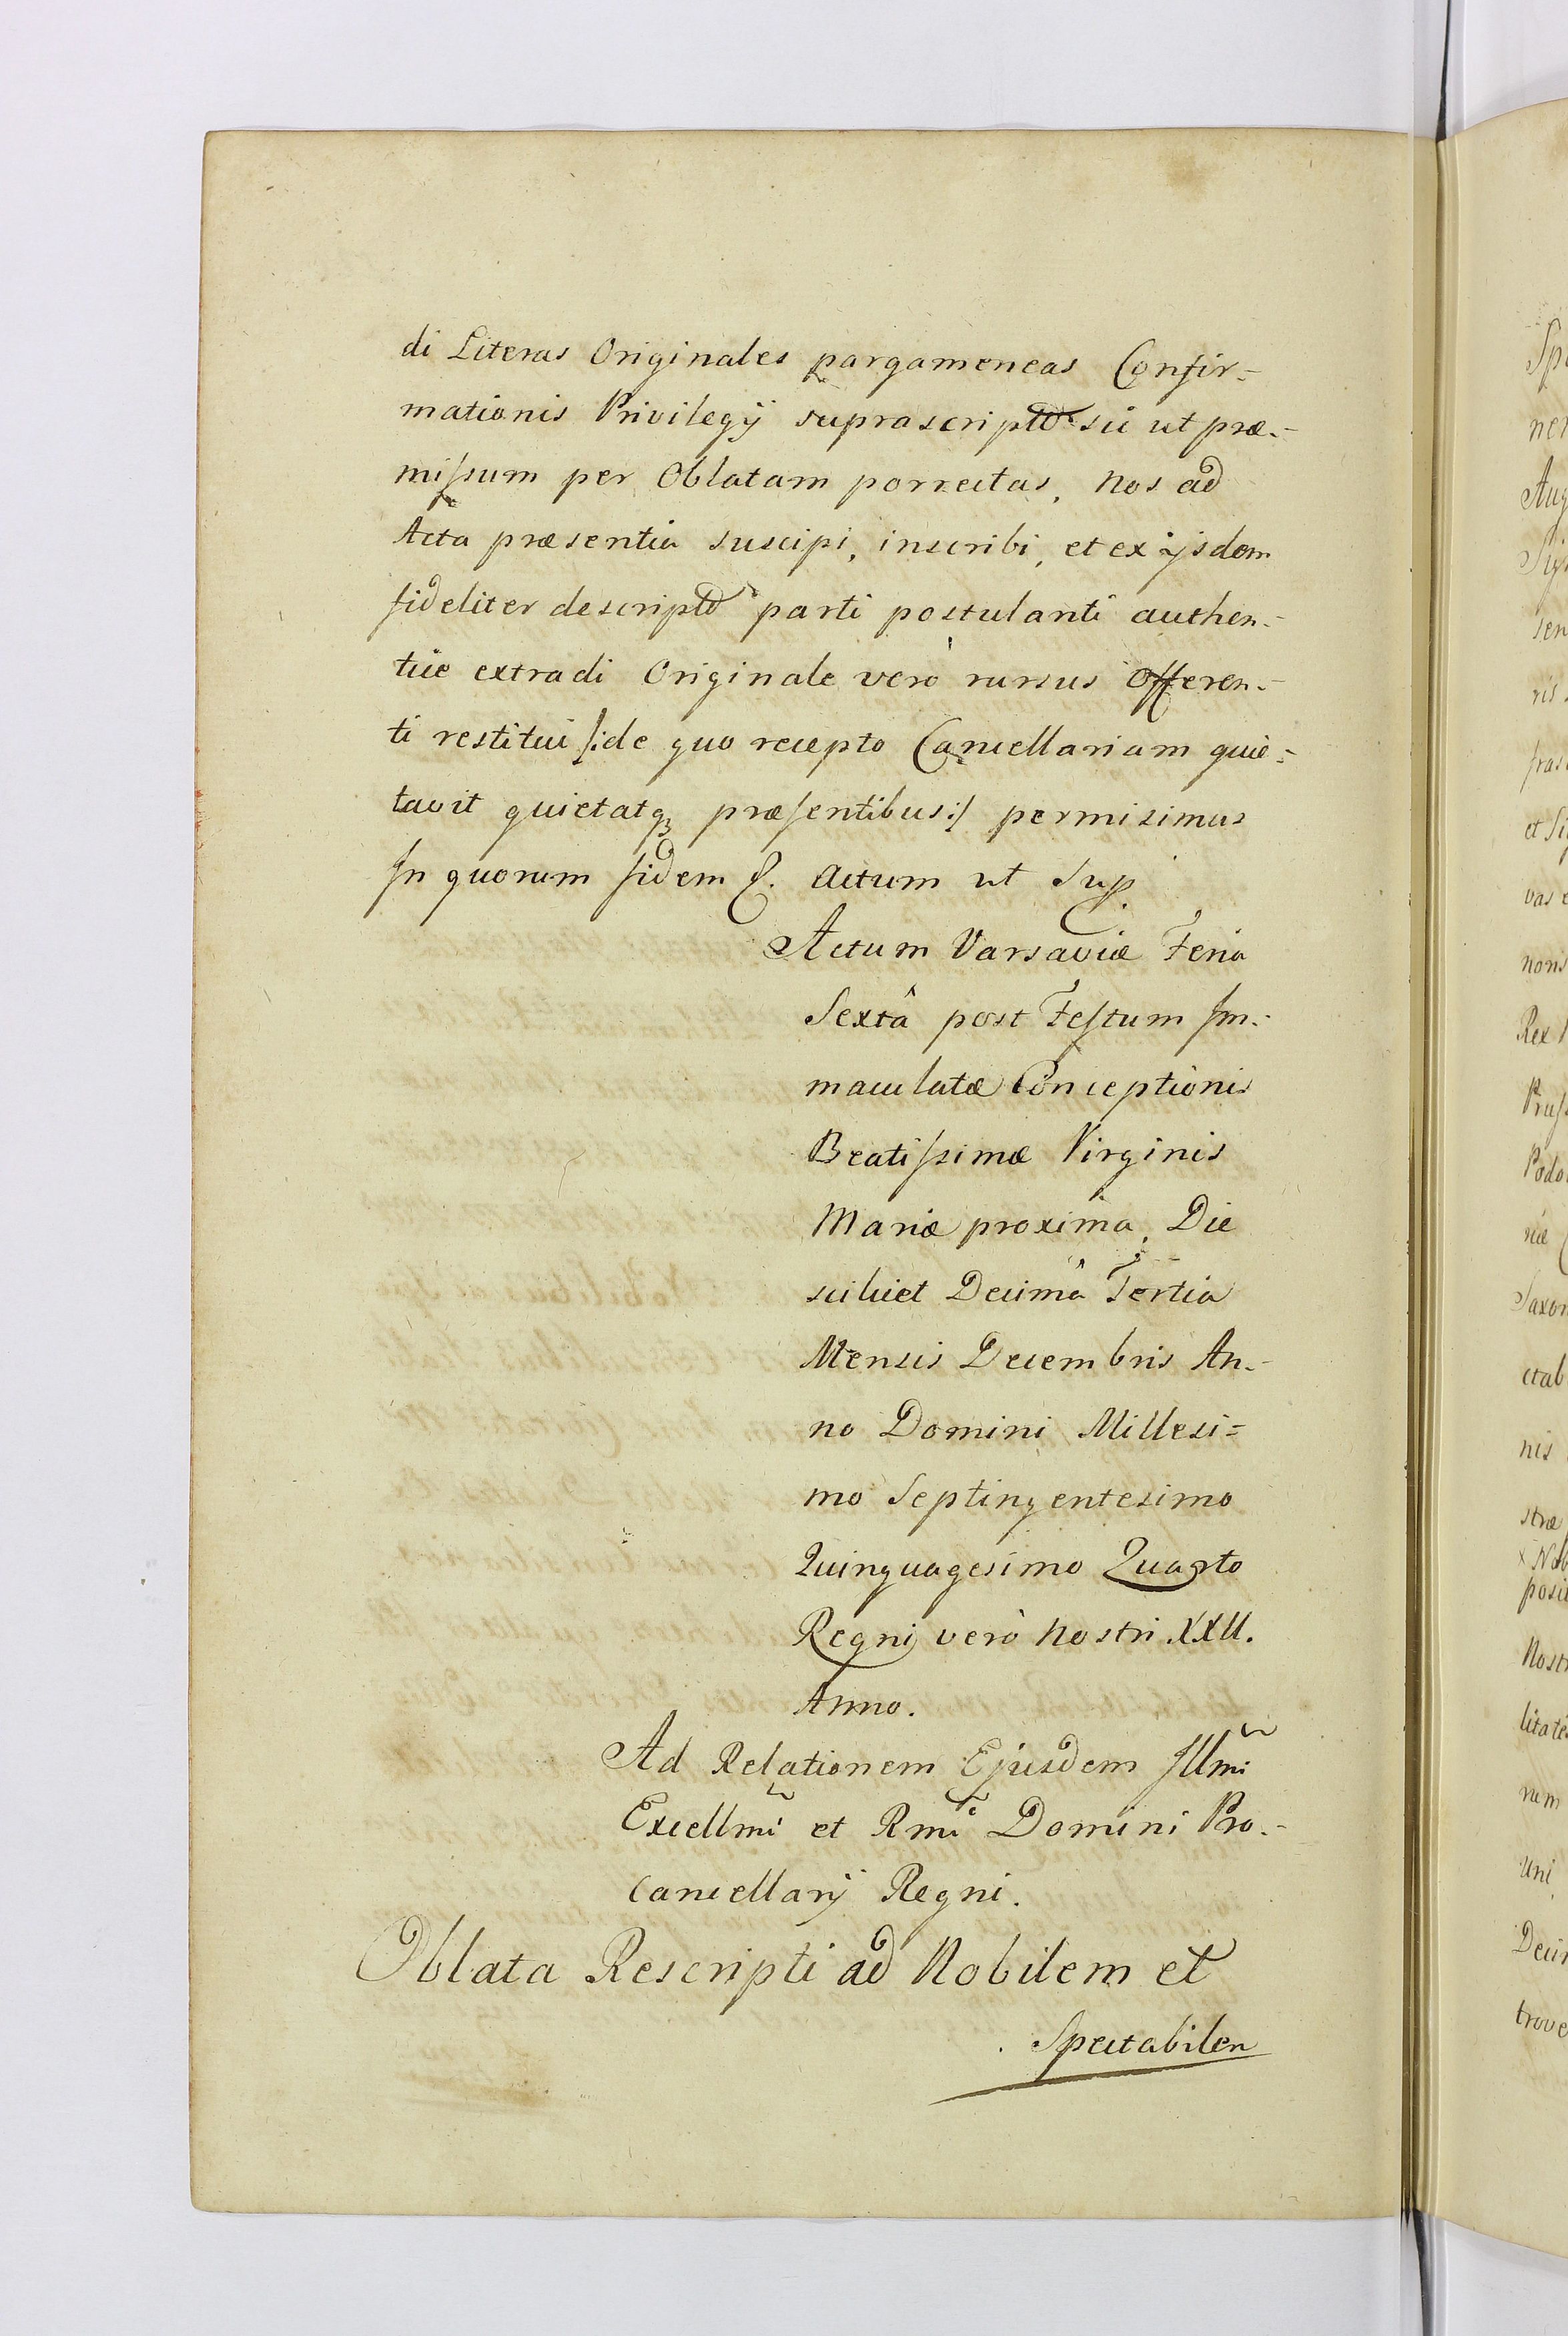 di Literas Originales pargameneas Confir-
mationis Privilegÿ suprascriptas sic ut præ-
mißum per Oblatam porrectas, Nos ad
Acta præsentia suscipi, inscribi, et ex ijsdem
fideliter descriptas parti postulanti authen-
tice extradi Originale verò rursus Offeren-
ti restitui /:de quo recepto Cancellariam quie-
tavit quietatq; præsentibus:/ permisimus
In quorum fidem &. Actum ut Sup.
Actum Varsaviæ Feria
Sextâ post Festum Im-
maculatæ Conceptionis
Beatißimæ Virginis
Mariæ proxima, Die
scilicet Decimâ Tertia
Mensis Decembris An-
no Domini Millesi=
mo Septingentesimo
Quinquagesimo Quarto
Regni verò Nostri XXII.
Anno.
Ad Relationem Ejusdem Illmi
Excellmi et Rmi Domini Pro-
cancellarÿ Regni.
Oblata Rescripti ad Nobilem et
Spectabilem